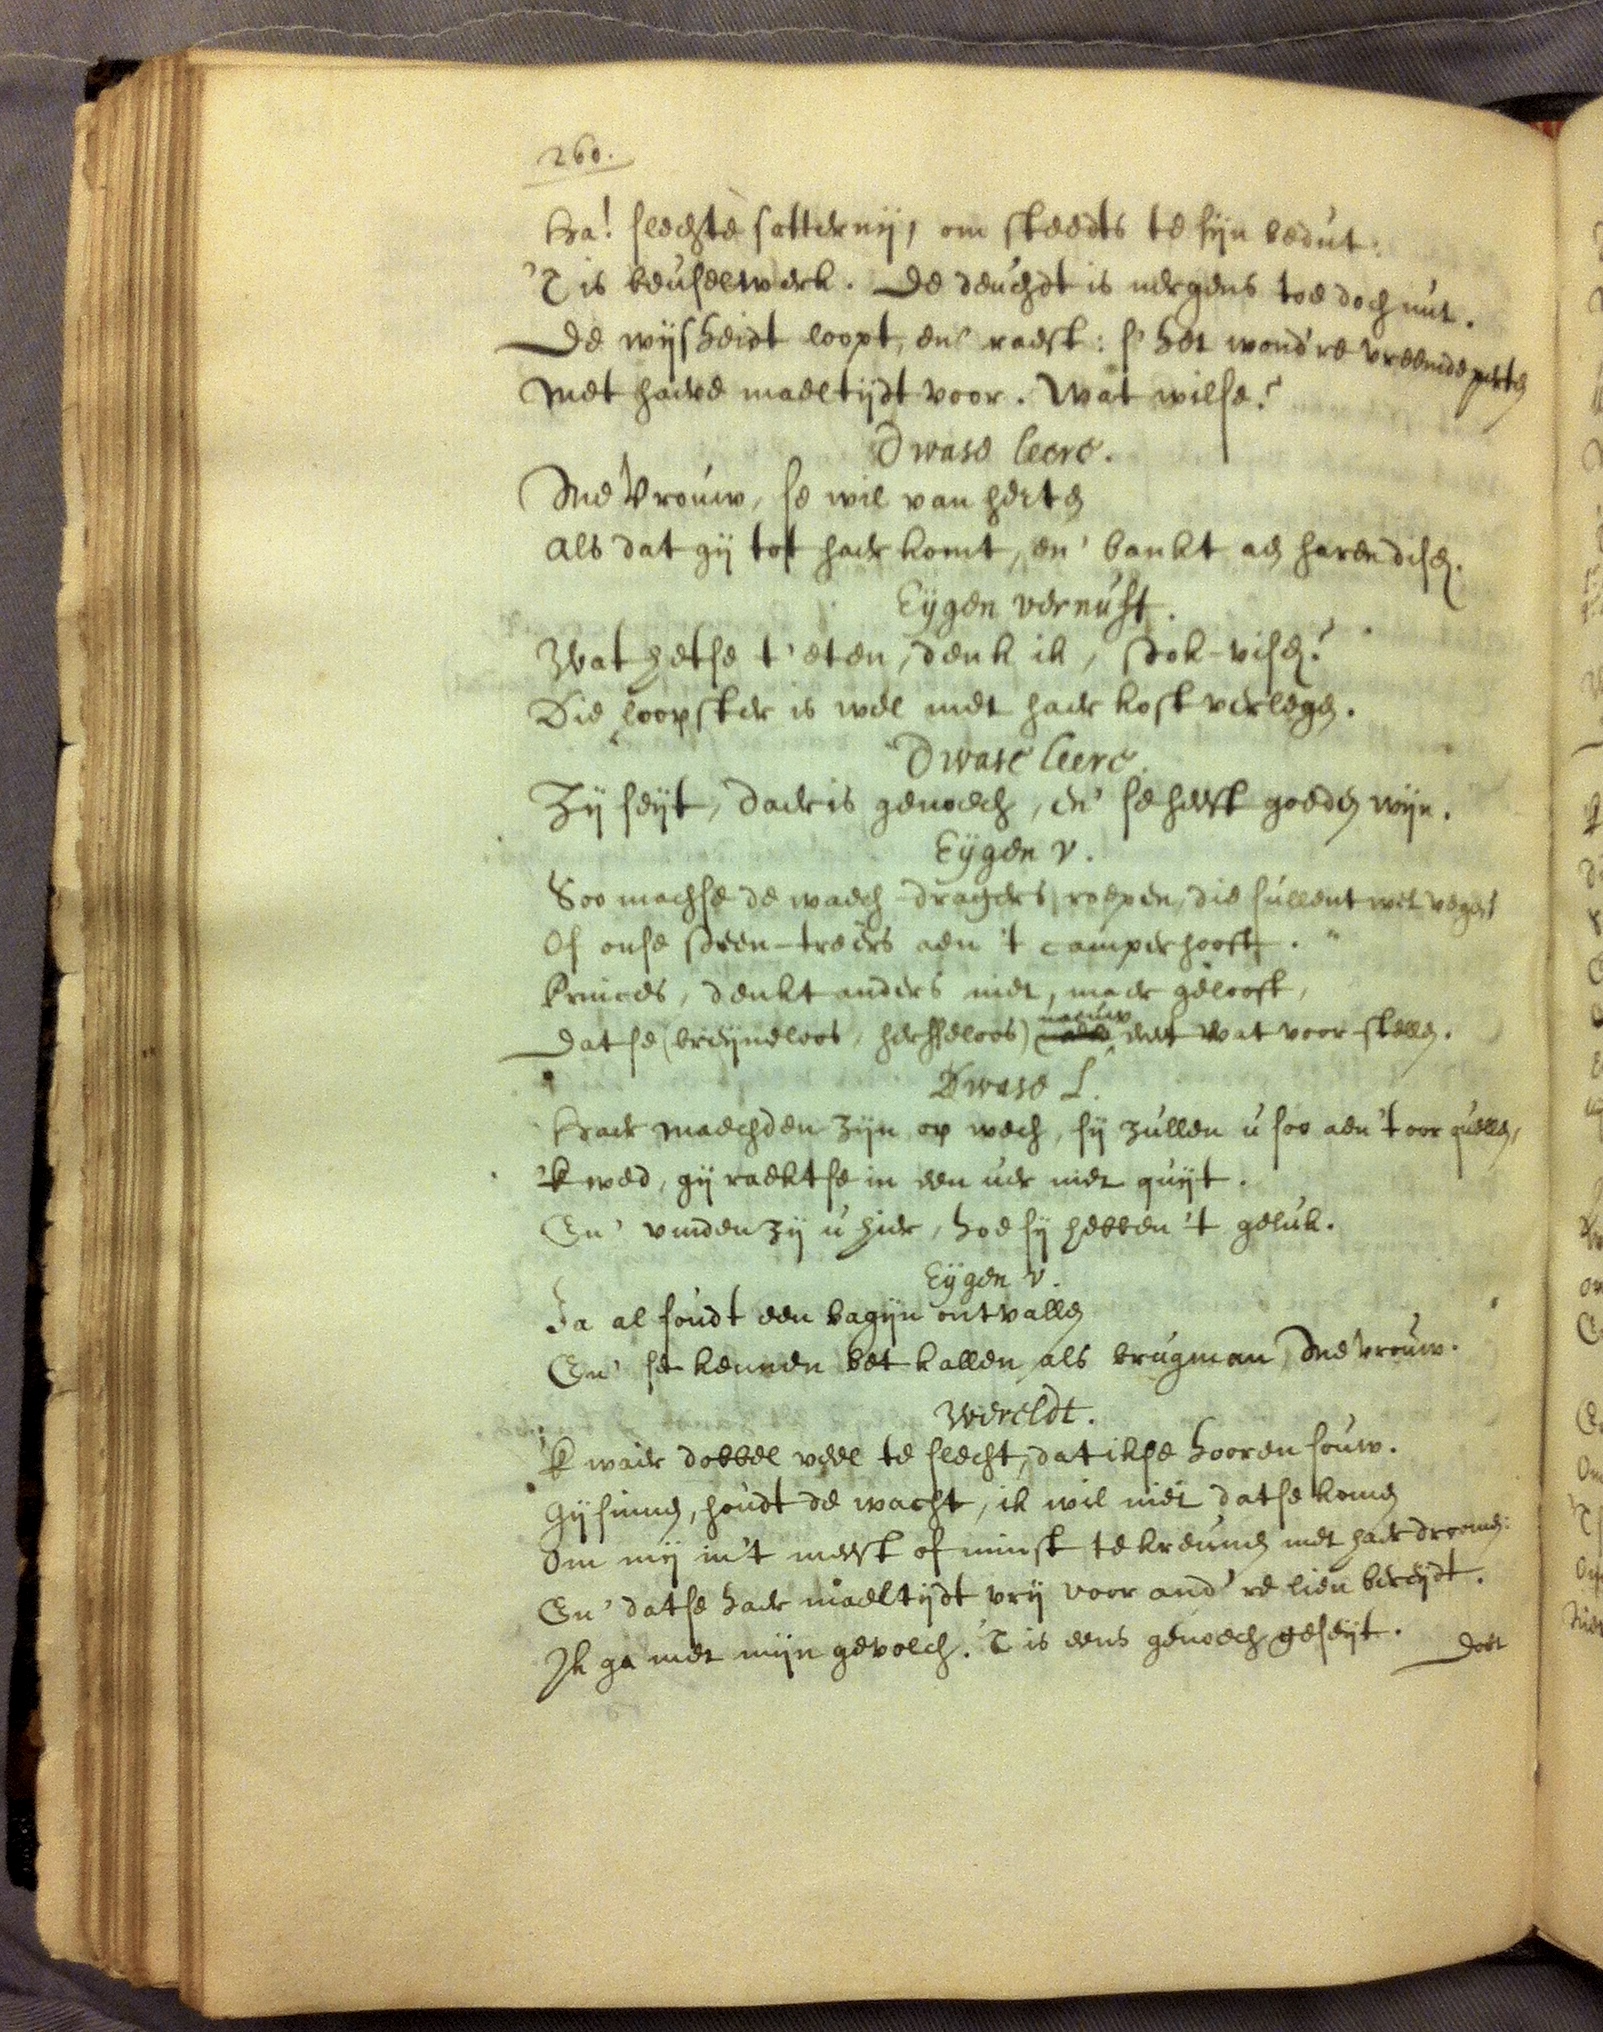 260.
Ha! slechte sotterny, om steedts te sijn bedut.
'T is beuselwerk. De deuchdt is nergens toe doch nut.
De wijsheidt loopt, en' raest: s' het wond're vreemde perten
Met haere maeltijdt voor. Wat wilse?
Dwase leere.
Me Vrouw, se wil van herten
Als dat gij tot haer komt, en' bankt aen haren disch.
Eygen vernuft.
Wat hetse t'eten, denk ik, stok-visch?
Die loopster is wel met haer kost verlegen.
Dwase leere.
Zij seyt, daer is genoech, en' se heeft goeden wijn.
Eygen v.
Soo machse de waech-dragers roepen, die sullent wel vegen
Of onse steen-treers aen 't camperhooft.
Princes, denkt anders niet, maer gelooft,
Datse (breyneloos, herssseloos) nauw eet wat voor-stellen.
Dwase L.
Haer maechden zijn op wech, sij zullen u soo aen 't oor quellen,
'k wed, gij raektse in een uer niet quijt.
En' vinden zij u hier, hoe sij hebben 't geluk.
Eygen v.
Ja al soudt een bagijn ontvallen
En' se kennen bet kallen als brugman, Me vrouw.
Wereldt.
'k waer dobbel veel te slecht, dat ikse hooren souw.
Gij sinnen, houdt de wacht, ik wil niet datse komen
Om mij in't meest of minst te kreunen met haer droomen:
En' datse haer maeltijdt vrij voor and're lien bereydt.
Ik ga met mijn gevolch. 'T is eens genoech geseyt.
Doet